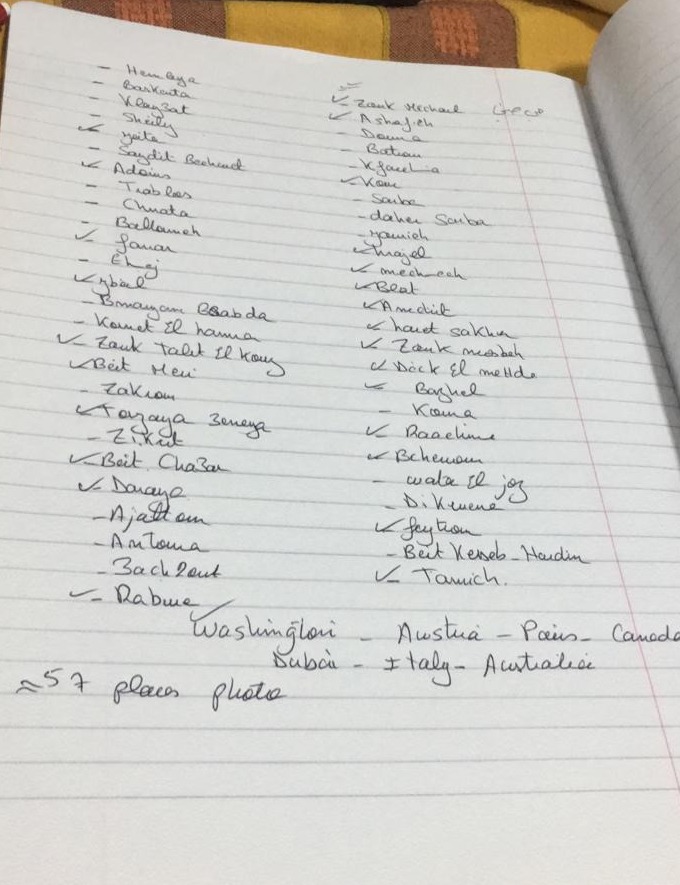 - Hemlaya
- Baskenta
- Klay3at
- Sheily
✓ Meita
- Saydit Bechwet
✓ Adonis
- Trables
- Chnata
- Ballouneh
✓ fanar
- Ehej
✓ jbeil
- Bmaryam Baabda
- Kornet El hamra
✓ Zouk Talet El Kony
✓ Beit Meri
- Zakrom
✓ Tazaya 3eneya
- Zikrit
✓ Beit Cha3ar
✓ Daraya
- Ajaltom
- Antoura
- 3ach2out
✓ - Rabwe
✓ Zouk Mechael جبيل
✓ Ashafieh
- Douma
- Batroun
- Kfarehla
✓ Kour
- Sarba
- daher Sarba
- yamieh
✓ Majel
✓ mechmech
✓ Blat
✓ Amchit
✓ haret sakher
✓ Zouk mosbeh
✓ Dick El mehde
✓ Bazhel
- Korna
✓ Raachine
✓ Bchemoun
- wata El joz
- Dikwene
✓ feytroun
- Beit Kesseb - Hardin
✓ Tamich.
Washington - Austria - Paris - Canada
Dubai - Italy - Australia
≈ 57 places photo